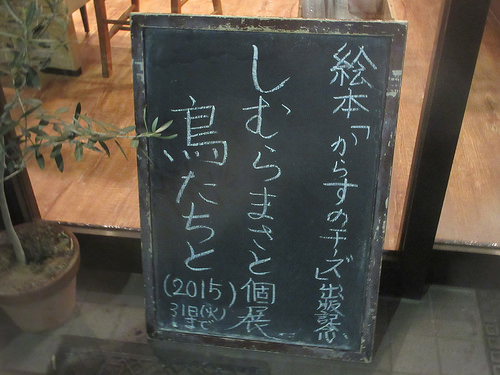 絵本「からすのチーズ」出版記念
しむらまさと個展
鳥たちと
(2015)
31日(火)
まで